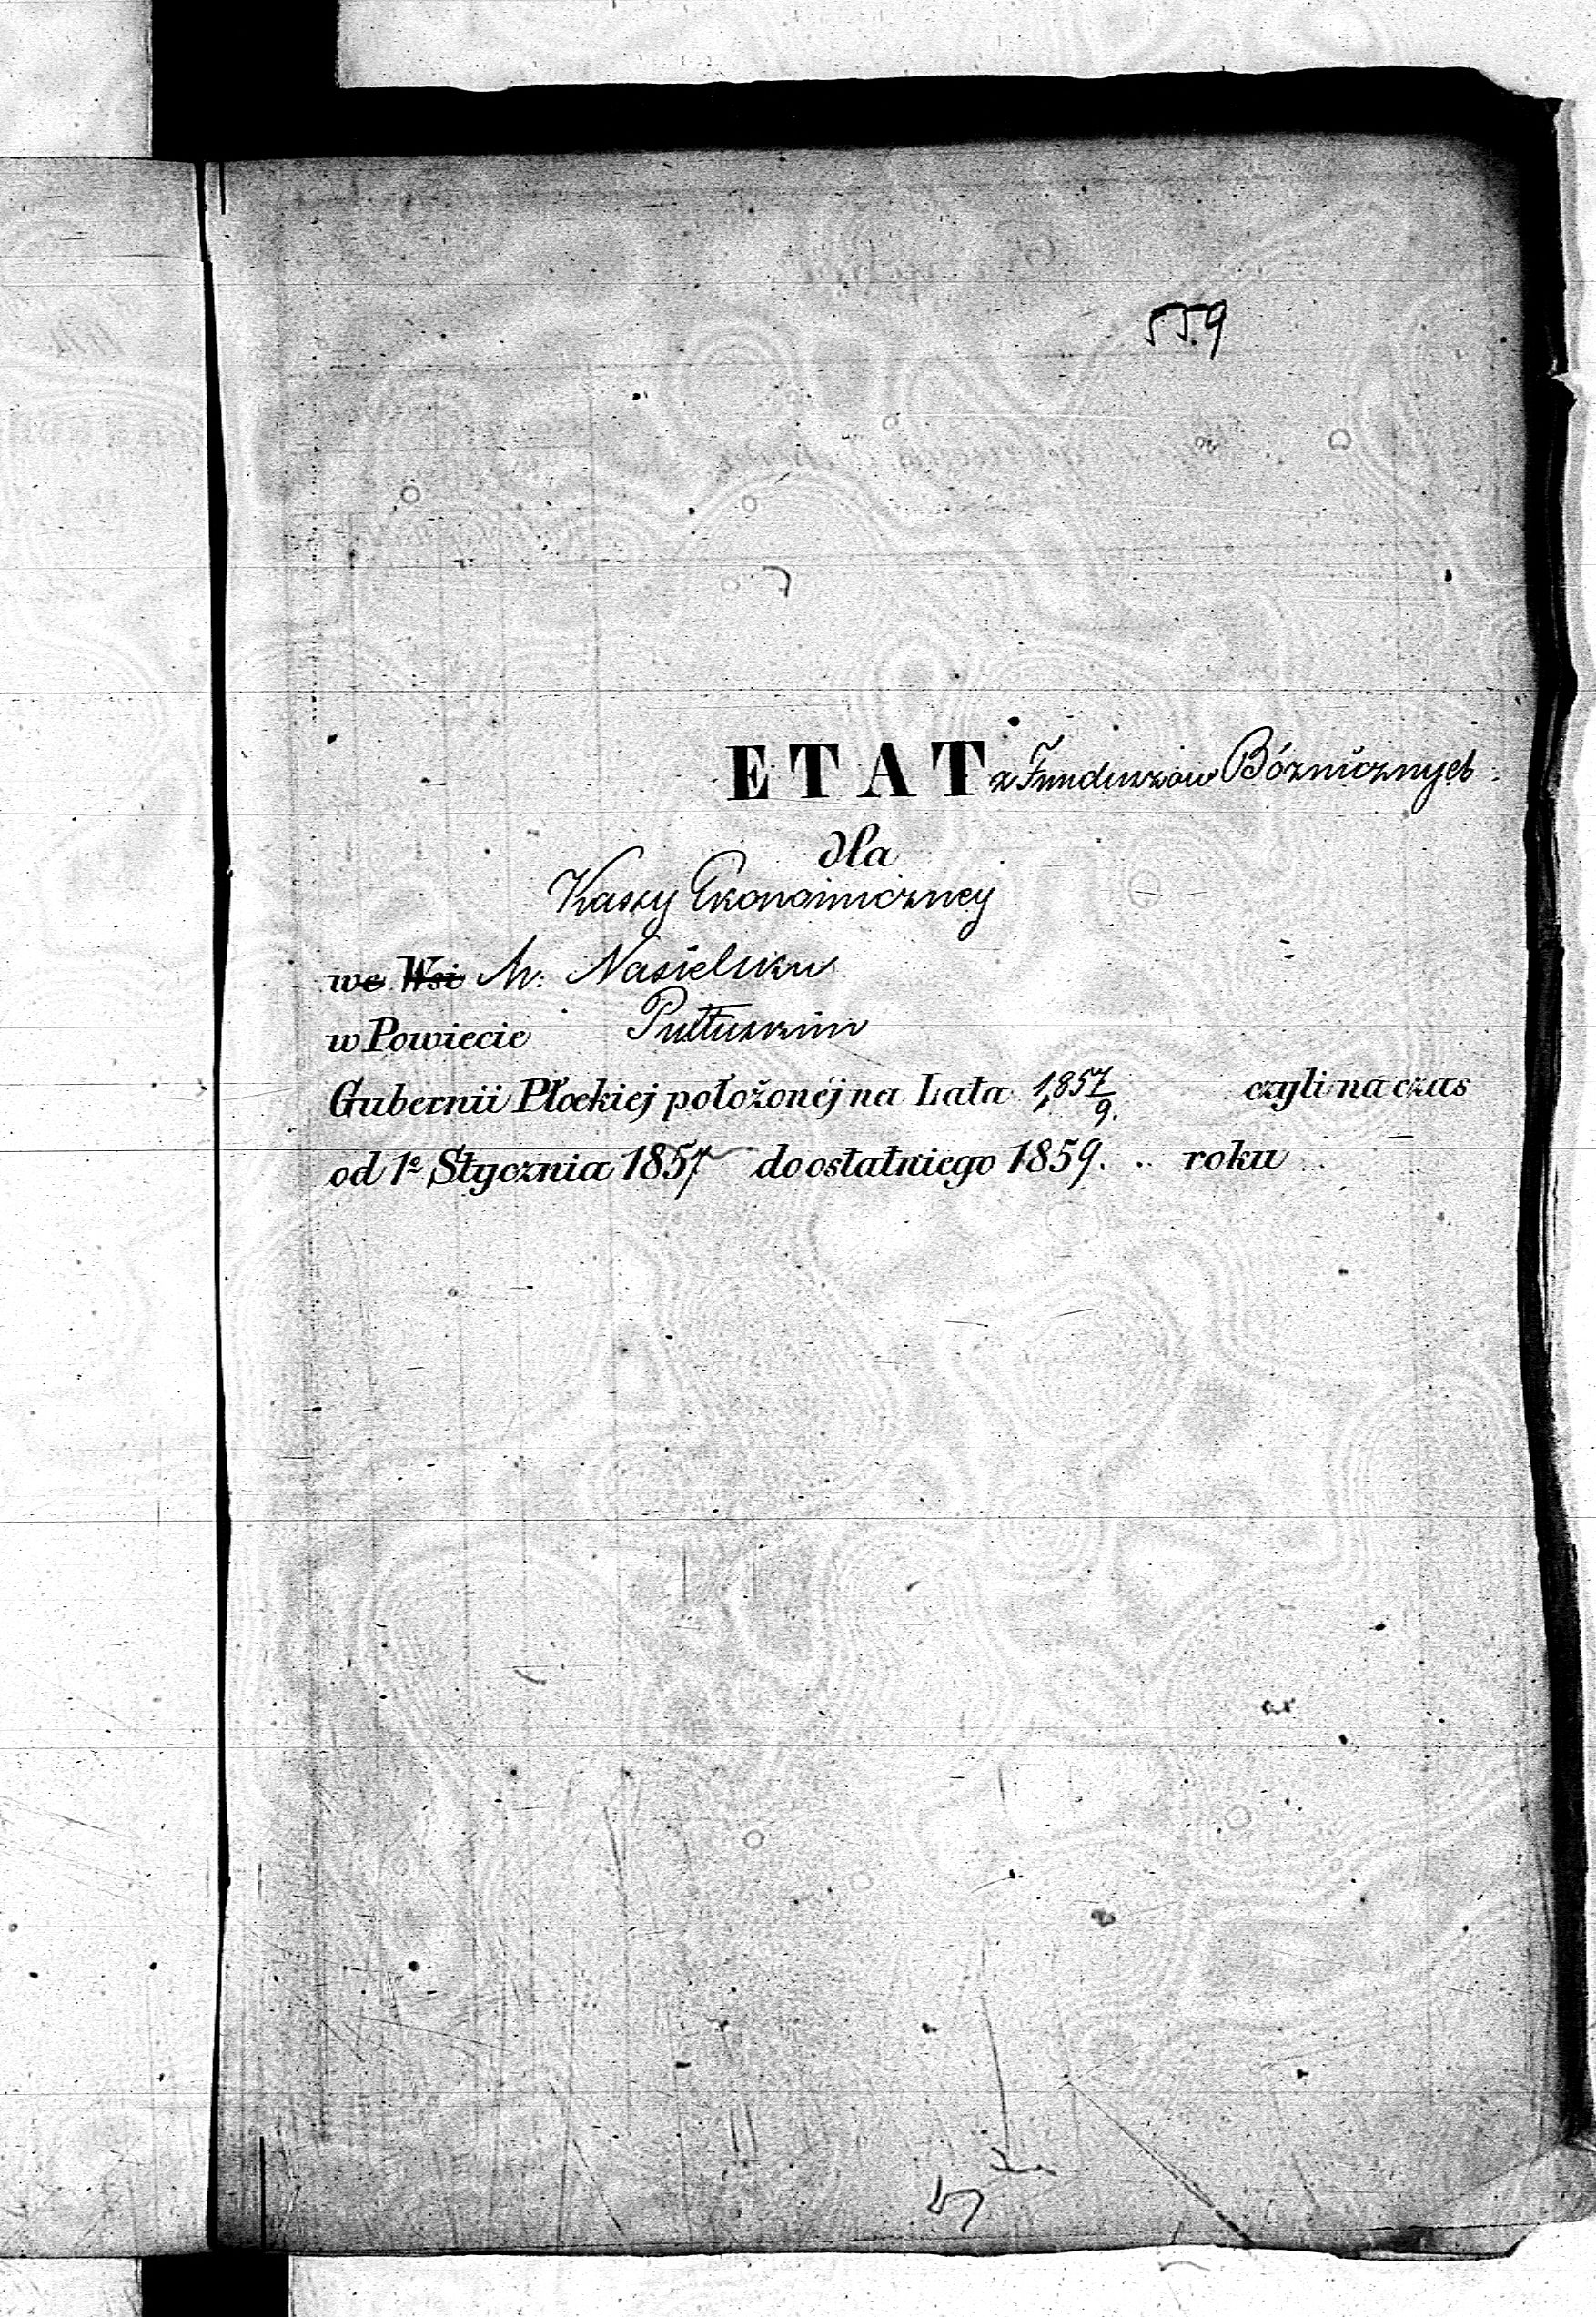 559
ETAT z Funduszów Bóżnicznych
dla
Kassy Ekonomiczney
we Wsi M. Nasielsku
w Powiecie Pułtuskim
Gubernii Płockiej położonéj na Lata 1857/9. czyli na czas
od 1º Stycznia 1857 do ostatniego 1859. roku